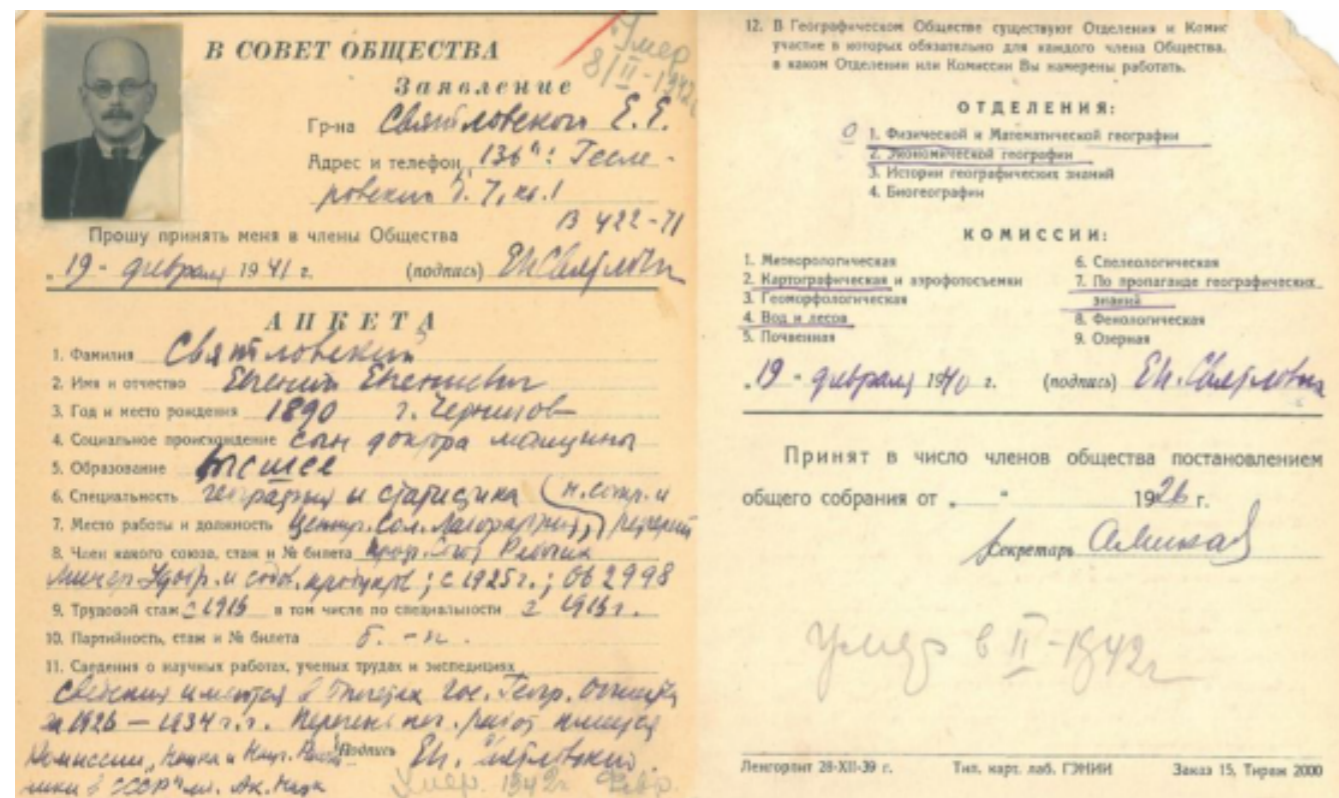 В СОВЕТ ОБЩЕСТВА
Умер
8/II-1942г
Заявление
Гр-на Святловского Е. Е.
Адрес и телефон 136": Гесле-
ровский д. 7, кв. 1
В 422-71
Прошу принять меня в члены Общества
„19" февраля 1941 г. (подпись) Ев. Святловский
АНКЕТА
1. Фамилия Святловский
2. Имя и отчество Евгений Евгениевич
3. Год и место рождения 1890 г. Чернигов
4. Социальное происхождение сын доктора медицины
5. Образование высшее
6. Специальность география и статистика (н. сотр. и
7. Место работы и должность Центр. Сол. Лаборатория)
8. Член какого союза, стаж и № билета Проф. Союз Рабочих
; с 1925 г.; 062998
9. Трудовой стаж с 1913 в том числе по специальности с 1913 г.
10. Партийность, стаж и № билета б. - п.
11. Сведения о научных работах, ученых трудах и экспедициях
Сведения имеются в Гос. Геогр. Общества
за 1926 — 1934 г. г. Перечень печ. работ имеется
Комиссии „Наука и Науч. Работ-
ники в СССР" Ак. Наук
Подпись Ев. Святловский
Умер. 1942 г. Февр.
12. В Географическом Обществе существуют Отделения и Комис
участие в которых обязательно для каждого члена Общества.
в каком Отделении или Комиссии Вы намерены работать.
ОТДЕЛЕНИЯ:
1. Физической и Математической географии
2. Экономической географии
3. Истории географических знаний
4. Биогеографии
КОМИССИИ:
1. Метеорологическая
2. Картографическая и аэрофотосъемки
3. Геоморфологическая
4. Вод и лесов
5. Почвенная
6. Спелеологическая
7. По пропаганде географических
знаний
8. Фенологическая
9. Озерная
„19" февраля 1940 г. (подпись) Ев. Святловский
Принят в число членов общества постановлением
общего собрания от „ " 1926 г.
Секретарь
Умер в II-1942 г
Ленгорлит 28-XII-39 г. Тип. карт. лаб. ГЭНИИ Заказ 15, Тираж 2000